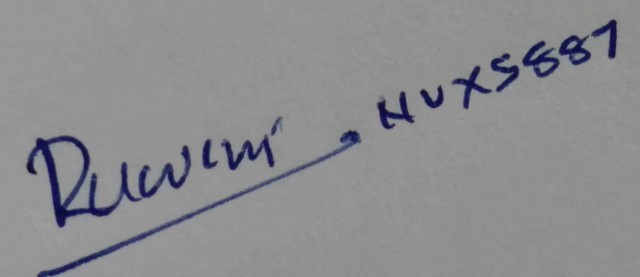 Ruwini
NUX5887